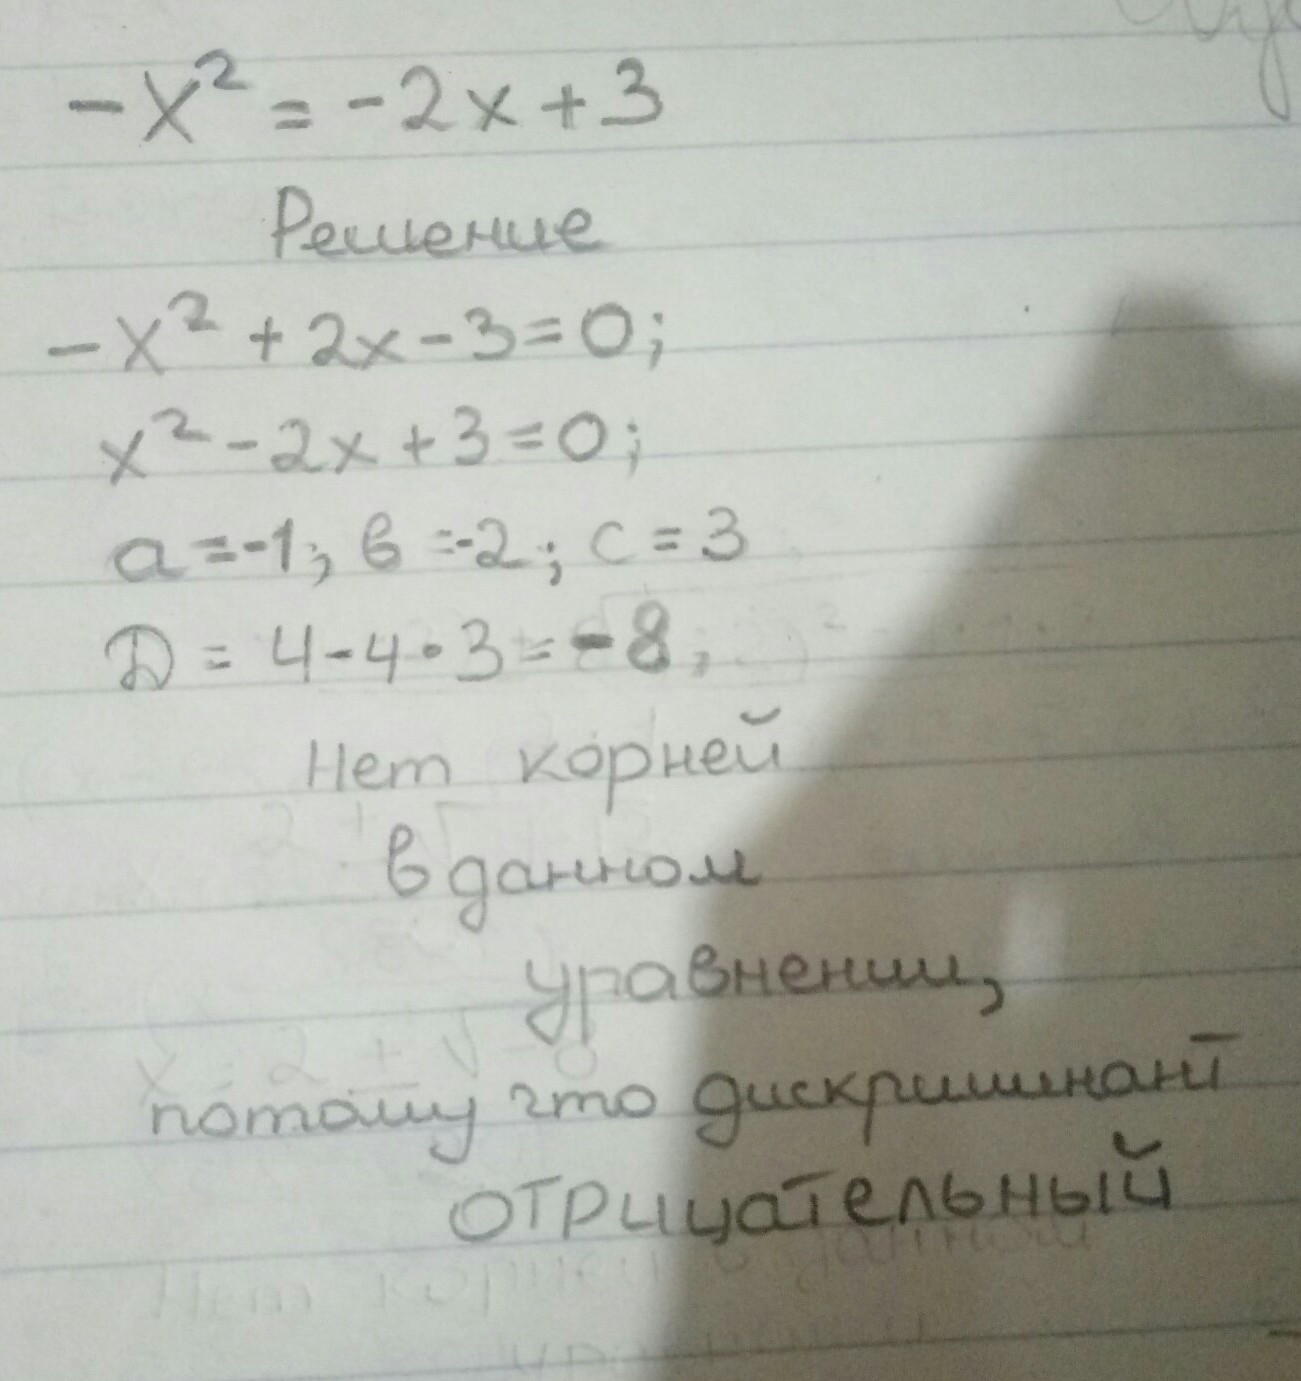 -x² = -2x + 3
Решение
-x² + 2x - 3 = 0;
x² - 2x + 3 = 0;
a = -1; в = -2; c = 3
D = 4 - 4 • 3 = -8;
Нет корней
в данном
уравнении,
потому что дискриминант
отрицательный